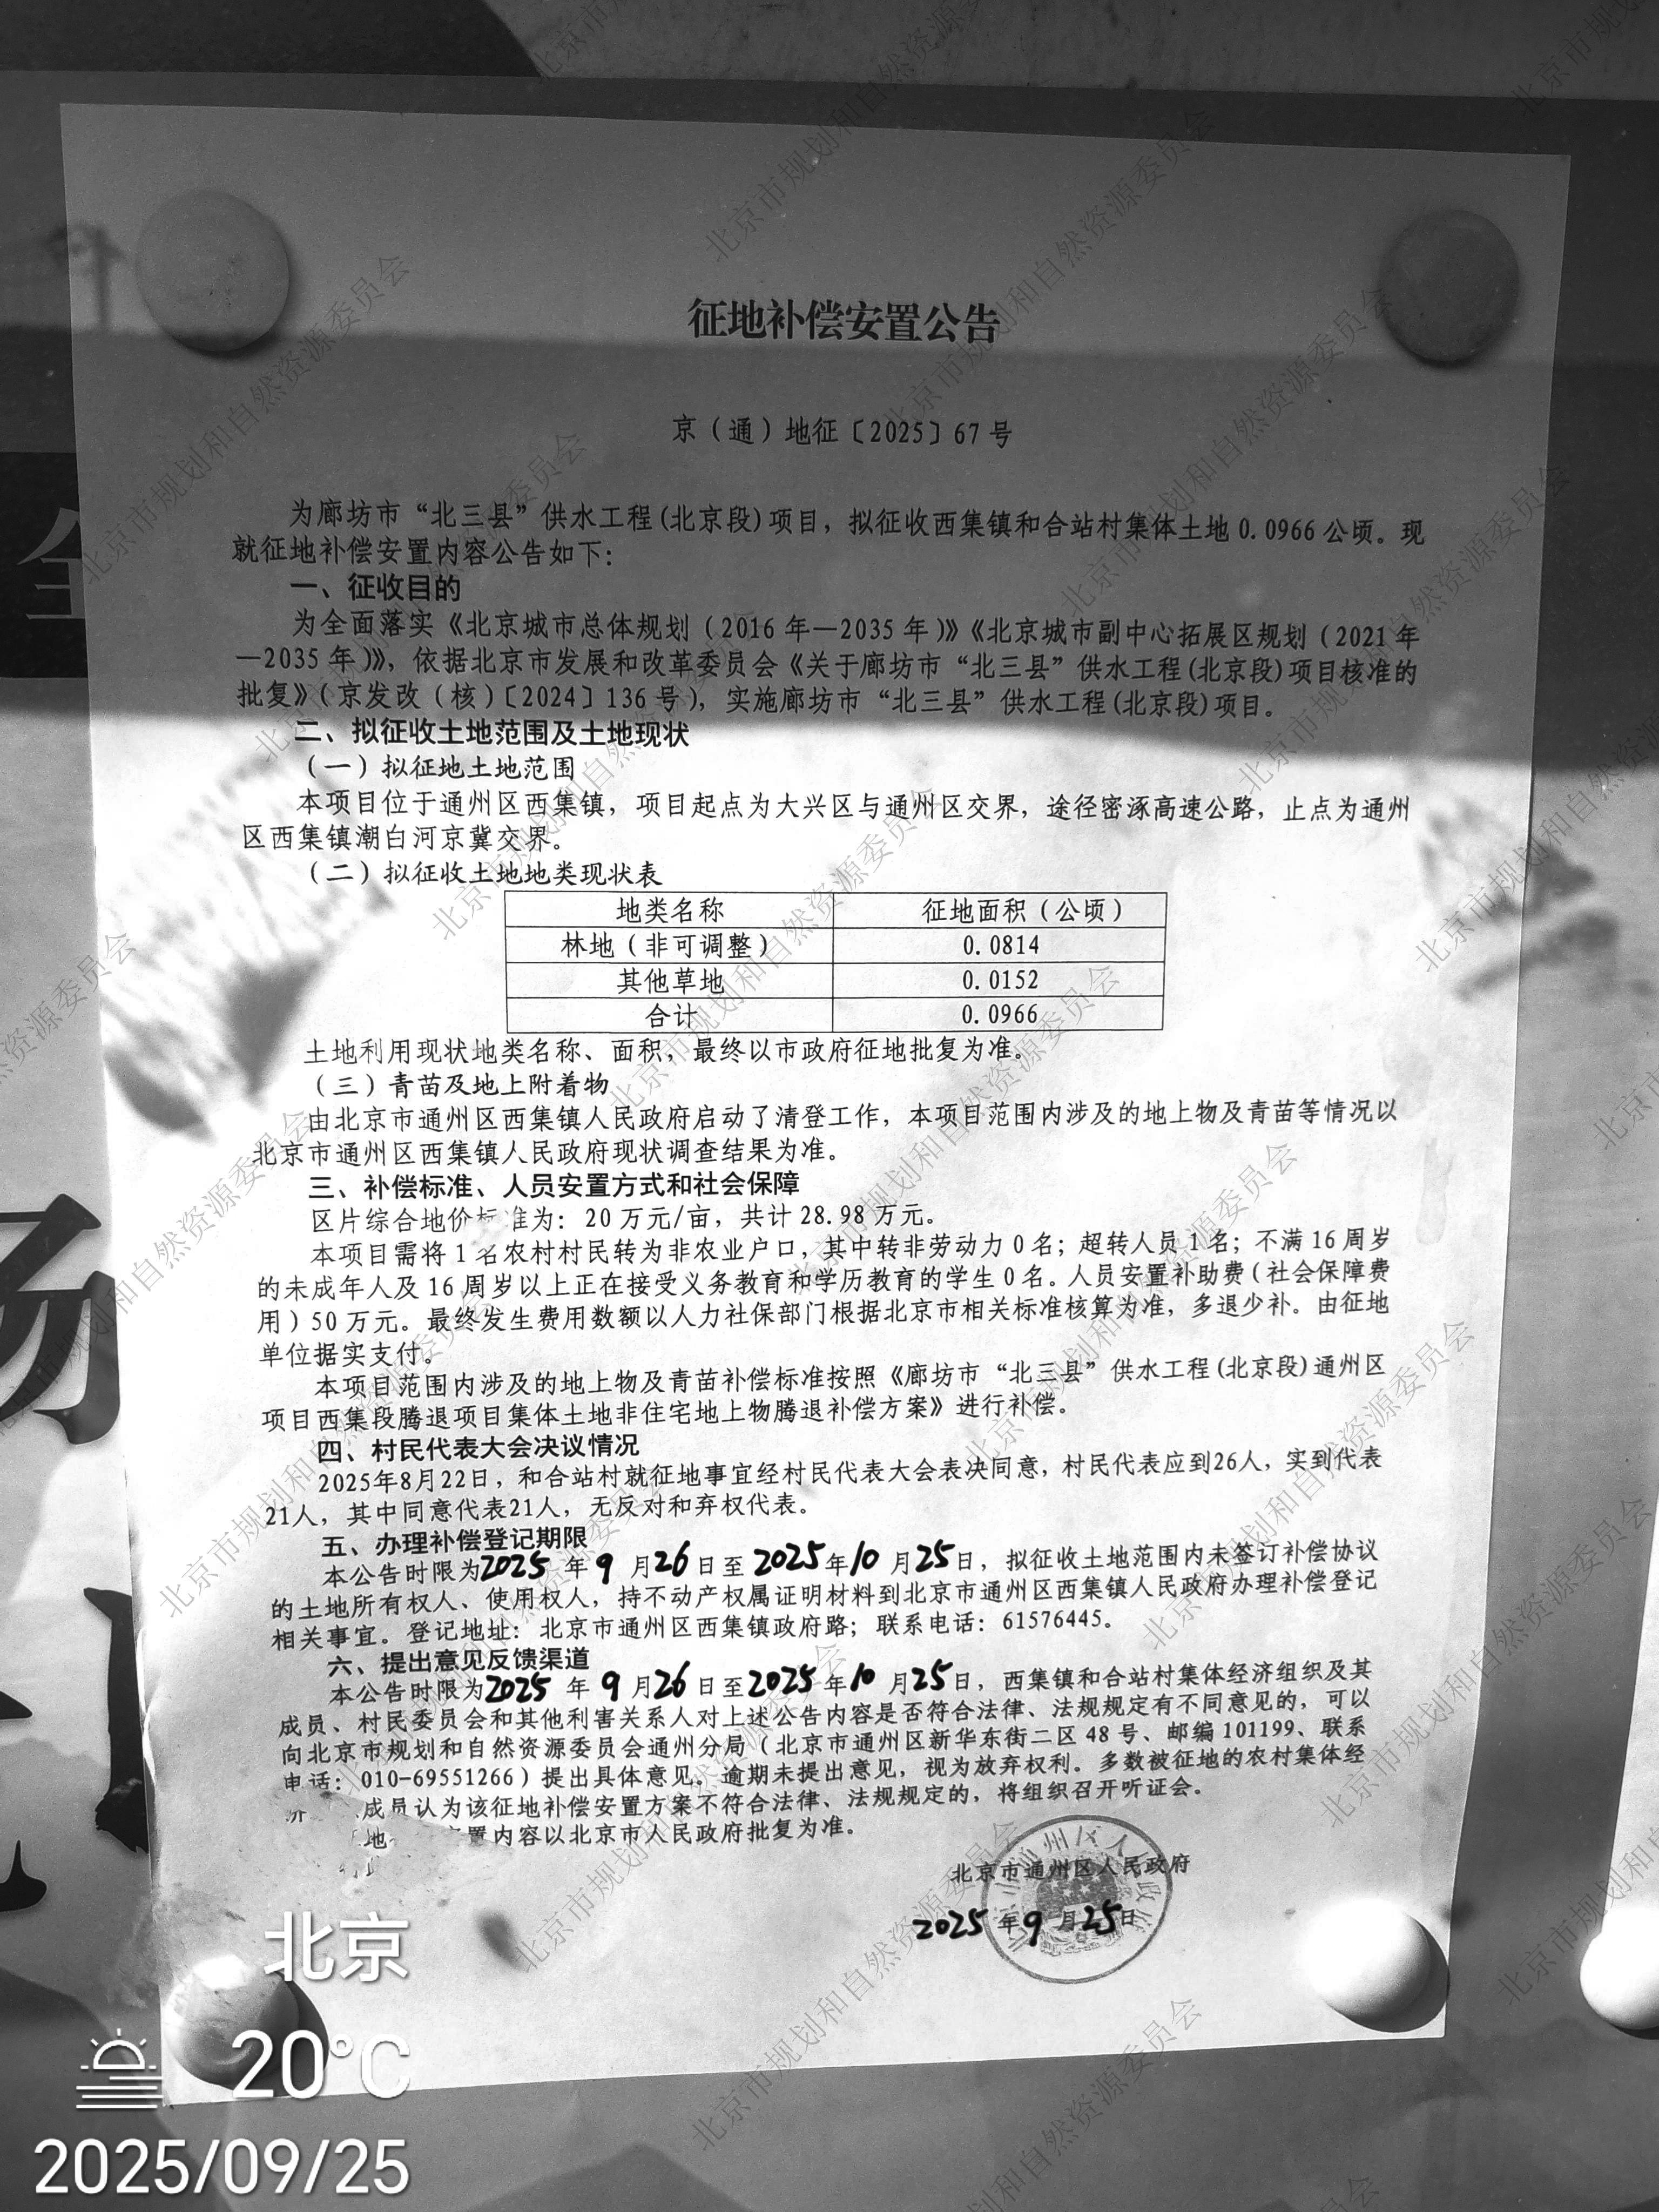 征地补偿安置公告
京（通）地征〔2025〕67 号
为廊坊市“北三县”供水工程(北京段)项目，拟征收西集镇和合站村集体土地 0.0966 公顷。现
就征地补偿安置内容公告如下：
一、征收目的
为全面落实《北京城市总体规划（2016 年—2035 年）》《北京城市副中心拓展区规划（2021 年
—2035 年）》，依据北京市发展和改革委员会《关于廊坊市“北三县”供水工程(北京段)项目核准的
批复》（京发改（核）〔2024〕136 号），实施廊坊市“北三县”供水工程(北京段)项目。
二、拟征收土地范围及土地现状
（一）拟征地土地范围
本项目位于通州区西集镇，项目起点为大兴区与通州区交界，途径密涿高速公路，止点为通州
区西集镇潮白河京冀交界。
（二）拟征收土地地类现状表
地类名称 征地面积（公顷）
林地（非可调整） 0.0814
其他草地 0.0152
合计 0.0966
土地利用现状地类名称、面积，最终以市政府征地批复为准。
（三）青苗及地上附着物
由北京市通州区西集镇人民政府启动了清登工作，本项目范围内涉及的地上物及青苗等情况以
北京市通州区西集镇人民政府现状调查结果为准。
三、补偿标准、人员安置方式和社会保障
区片综合地价标准为：20 万元/亩，共计 28.98 万元。
本项目需将 1 名农村村民转为非农业户口，其中转非劳动力 0 名；超转人员 1 名；不满 16 周岁
的未成年人及 16 周岁以上正在接受义务教育和学历教育的学生 0 名。人员安置补助费（社会保障费
用）50 万元。最终发生费用数额以人力社保部门根据北京市相关标准核算为准，多退少补。由征地
单位据实支付。
本项目范围内涉及的地上物及青苗补偿标准按照《廊坊市“北三县”供水工程(北京段)通州区
项目西集段腾退项目集体土地非住宅地上物腾退补偿方案》进行补偿。
四、村民代表大会决议情况
2025年8月22日，和合站村就征地事宜经村民代表大会表决同意，村民代表应到26人，实到代表
21人，其中同意代表21人，无反对和弃权代表。
五、办理补偿登记期限
本公告时限为2025 年 9 月 26 日至 2025 年 10 月 25 日，拟征收土地范围内未签订补偿协议
的土地所有权人、使用权人，持不动产权属证明材料到北京市通州区西集镇人民政府办理补偿登记
相关事宜。登记地址：北京市通州区西集镇政府路；联系电话：61576445。
六、提出意见反馈渠道
本公告时限为2025 年 9 月 26 日至2025 年 10 月 25 日，西集镇和合站村集体经济组织及其
成员、村民委员会和其他利害关系人对上述公告内容是否符合法律、法规规定有不同意见的，可以
向北京市规划和自然资源委员会通州分局（北京市通州区新华东街二区 48 号、邮编 101199、联系
电话：010-69551266）提出具体意见。逾期未提出意见，视为放弃权利。多数被征地的农村集体经
成员认为该征地补偿安置方案不符合法律、法规规定的，将组织召开听证会。
地 置内容以北京市人民政府批复为准。
北京市通州区人民政府
2025 年 9 月 25 日
北京
20°C
2025/09/25
北京市规划和自然资源委员会